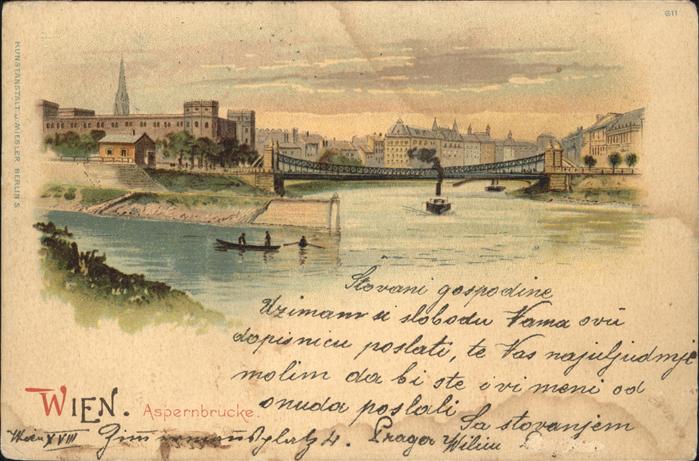 611
KUNSTANSTALT J. MIESLER BERLIN S.
Štovani gospodine
Uzimam si slobodu Vama ovu
dopisnicu poslati, te Vas najuljudnije
molim da bi ste i vi meni od
onuda poslali
Sa štovanjem
WIEN. Aspernbrucke.
Wien XVIII Zimmermannsplatz 4. Prager Wilim